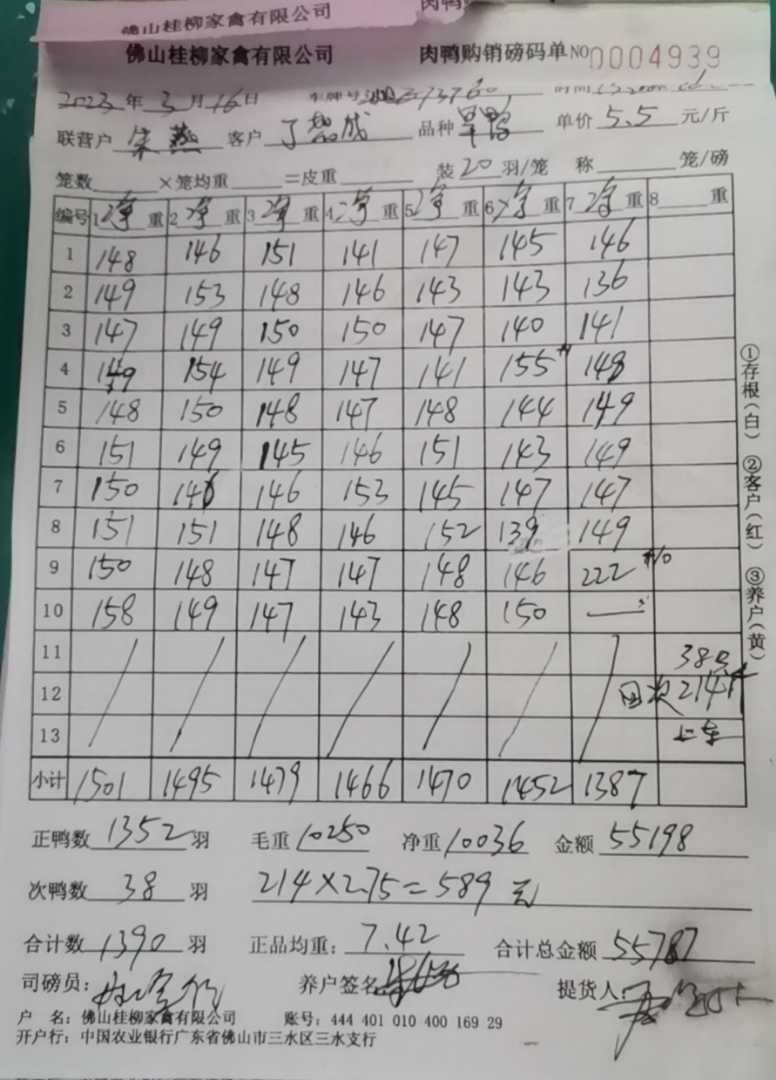 佛山桂柳家禽有限公司 肉鸭
佛山桂柳家禽有限公司 肉鸭购销磅码单 NO 0004939
2023年3月16日 车牌号 时间
联营户 客户 品种 旱鸭 单价 5.5 元/斤
笼数 ×笼均重 =皮重 装20羽/笼 称 笼/磅
编号 1净重 2净重 3净重 4净重 5净重 6净重 7净重 8 重
1 148 146 151 141 147 145 146
2 149 153 148 146 143 143 136
3 147 149 150 150 147 140 141
4 149 154 149 147 141 155 148
5 148 150 148 147 148 144 149
6 151 149 145 146 151 143 149
7 150 146 146 153 145 147 147
8 151 151 148 146 152 139 149
9 150 148 147 147 148 146 222
10 158 149 147 143 148 150 —
11 38只
12 次214斤
13 上车
小计 1501 1495 1479 1466 1470 1452 1387
正鸭数 1352 羽 毛重 10250 净重 10036 金额 55198
次鸭数 38 羽 214×2.75=589元
合计数 1390 羽 正品均重: 7.42 合计总金额 55787
司磅员: 养户签名 提货人:
户 名: 佛山桂柳家禽有限公司 账号: 444 401 010 400 169 29
开户行: 中国农业银行广东省佛山市三水区三水支行
①存根(白) ②客户(红) ③养户(黄)